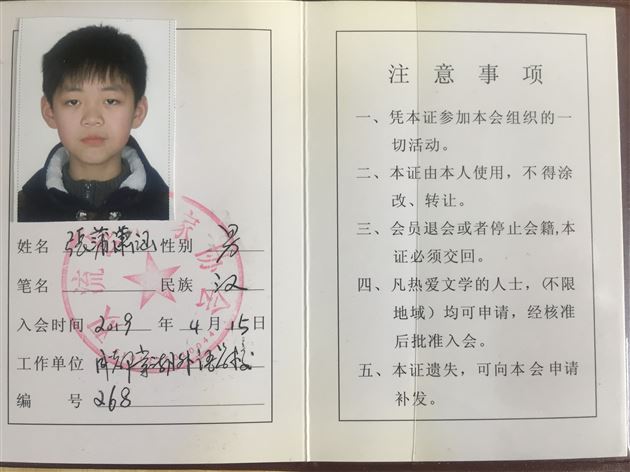 姓名 張蒲潇涵 性别 男
笔名 民族 汉
入会时间 2019 年 4 月 15 日
工作单位 成都 外语学校
编 号 268
注意事项
一、凭本证参加本会组织的一
切活动。
二、本证由本人使用，不得涂
改、转让。
三、会员退会或者停止会籍,本
证必须交回。
四、凡热爱文学的人士，(不限
地域）均可申请，经核准
后批准入会。
五、本证遗失，可向本会申请
补发。